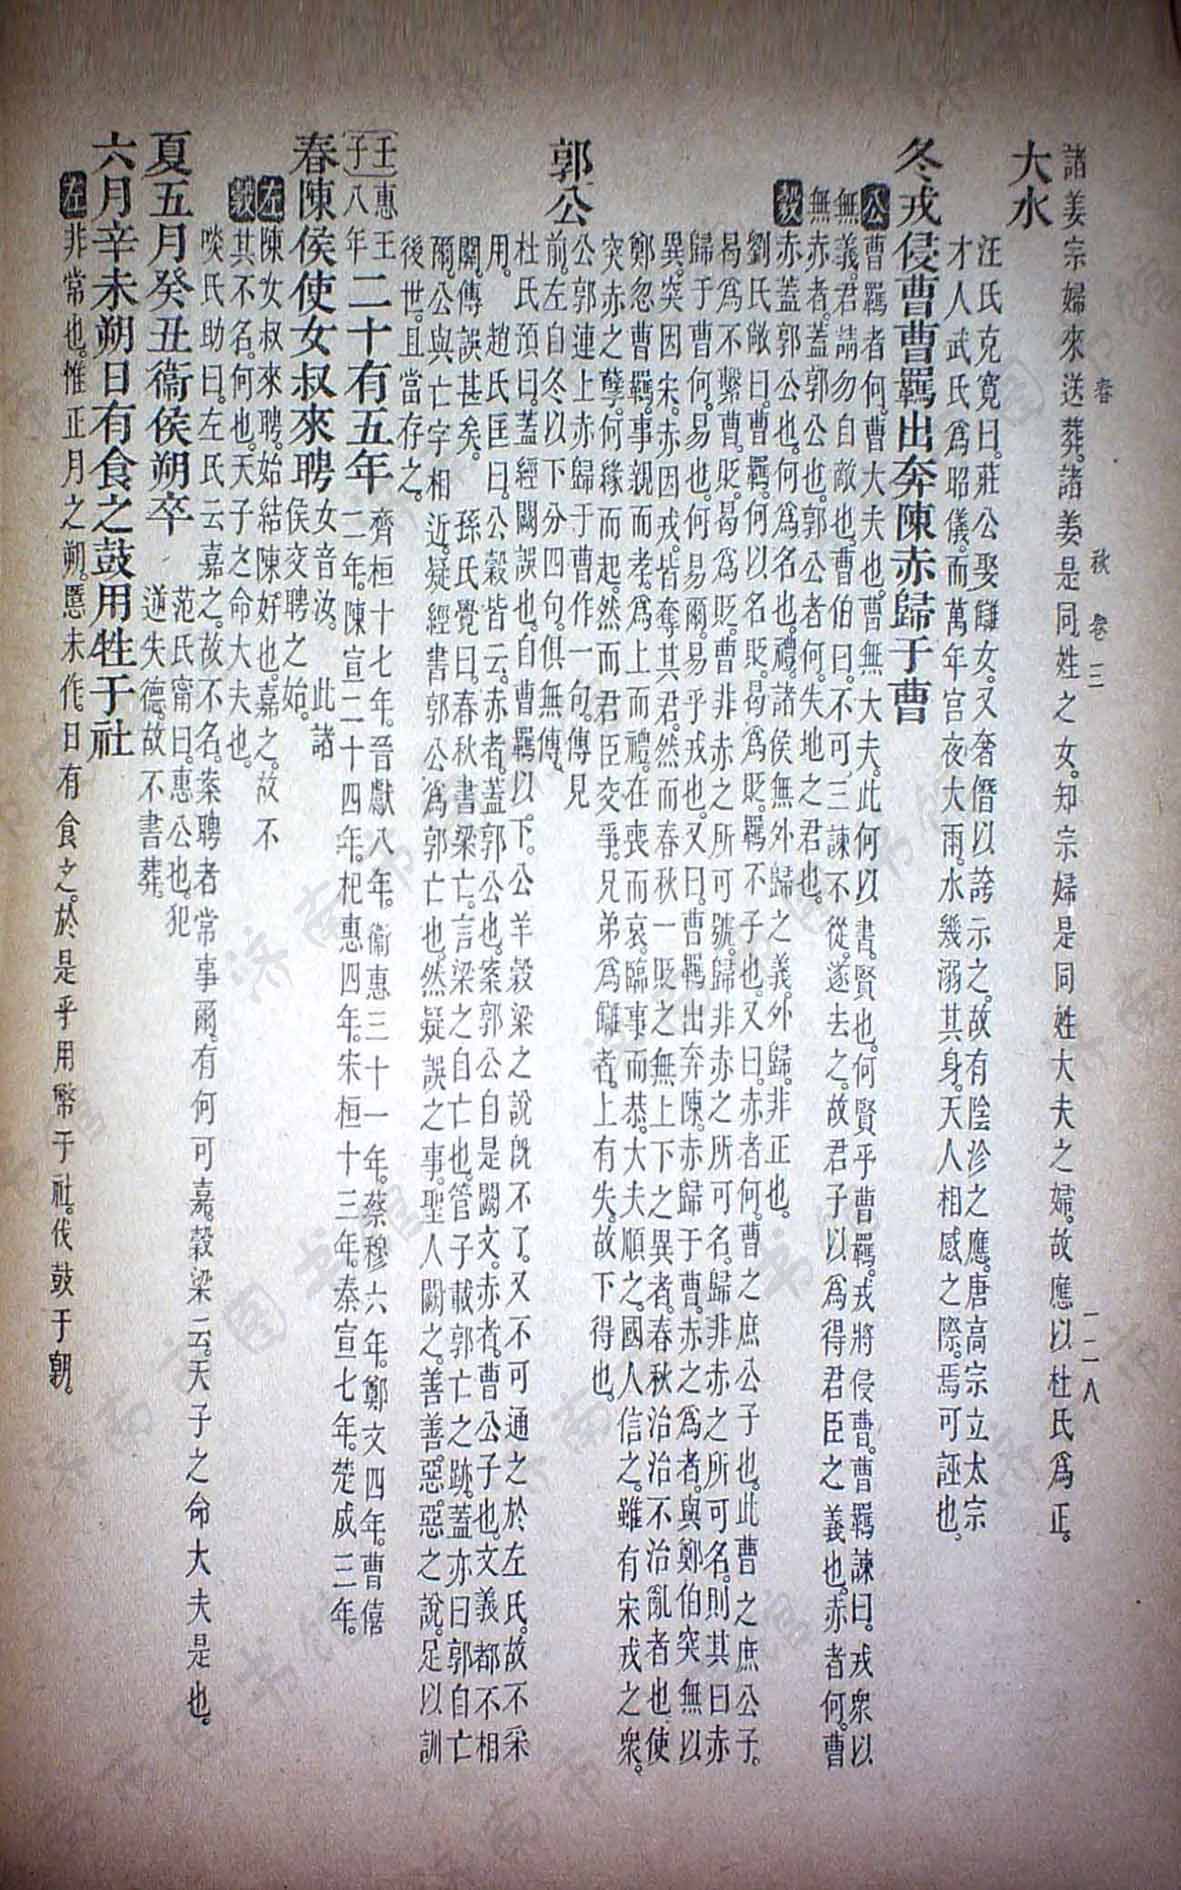 春　秋　卷三　一二八
諸姜宗婦來送葬。諸姜是同姓之女。知宗婦是同姓大夫之婦。故應以杜氏爲正。
大水
汪氏克寬曰。莊公娶讎女。又奢僭以誇示之。故有陰沴之應。唐高宗立太宗
才人武氏爲昭儀。而萬年宮夜大雨。水幾溺其身。天人相感之際。焉可誣也。
冬戎侵曹曹羈出奔陳赤歸于曹
公曹羈者何。曹大夫也。曹無大夫。此何以書。賢也。何賢乎曹羈。戎將侵曹。曹羈諫曰。戎衆以
無義。君請勿自敵也。曹伯曰。不可。三諫不從。遂去之。故君子以爲得君臣之義也。赤者何。曹
無赤者。蓋郭公也。郭公者何。失地之君也。
穀赤蓋郭公也。何爲名也。禮。諸侯無外歸之義。外歸。非正也。
劉氏敞曰。曹羈。何以名。貶。曷爲貶。羈不子也。又曰。赤者何。曹之庶公子也。此曹之庶公子。
曷爲不繫曹。貶。曷爲貶。曹非赤之所可號。歸非赤之所可名。歸非赤之所可名。則其曰赤
歸于曹何。易也。何易爾。易乎戎也。又曰。曹羈出奔陳。赤歸于曹。赤之爲者。與鄭伯突無以
異。突因宋。赤因戎。皆奪其君。然而春秋一貶之無上下之異者。春秋治治不治亂者也。使
鄭忽曹羈。事親而孝。爲上而禮。在喪而哀。臨事而恭。大夫順之。國人信之。雖有宋戎之衆。
突赤之孽。何緣而起。然而君臣交爭。兄弟爲讎者。上有失。故下得也。
郭公
公郭連上赤歸于曹作一句。傳見
前。左自冬以下分四句。俱無傳。
杜氏預曰。蓋經闕誤也。自曹羈以下。公羊穀梁之說旣不了。又不可通之於左氏。故不采
用。　趙氏匡曰。公穀皆云。赤者。蓋郭公也。案郭公自是闕文。赤者。曹公子也。文義都不相
關。傳誤甚矣。　孫氏覺曰。春秋書梁亡。言梁之自亡也。管子載郭亡之跡。蓋亦曰郭自亡
爾。公與亡字相近。疑經書郭公爲郭亡也。然疑誤之事。聖人闕之。善善。惡惡之說。足以訓
後世。且當存之。
壬子惠王八年二十有五年齊桓十七年。晉獻八年。衞惠三十一年。蔡穆六年。鄭文四年。曹僖
二年。陳宣二十四年。杞惠四年。宋桓十三年。秦宣七年。楚成三年。
春陳侯使女叔來聘女音汝。此諸
侯交聘之始。
左陳女叔來聘。始結陳好也。嘉之。故不
穀其不名。何也。天子之命大夫也。
啖氏助曰。左氏云嘉之。故不名。案聘者常事爾。有何可嘉。穀梁云。天子之命大夫是也。
夏五月癸丑衞侯朔卒范氏甯曰。惠公也。犯
逆失德。故不書葬。
六月辛未朔日有食之鼓用牲于社
左非常也。惟正月之朔。慝未作。日有食之。於是乎用幣于社。伐鼓于朝。